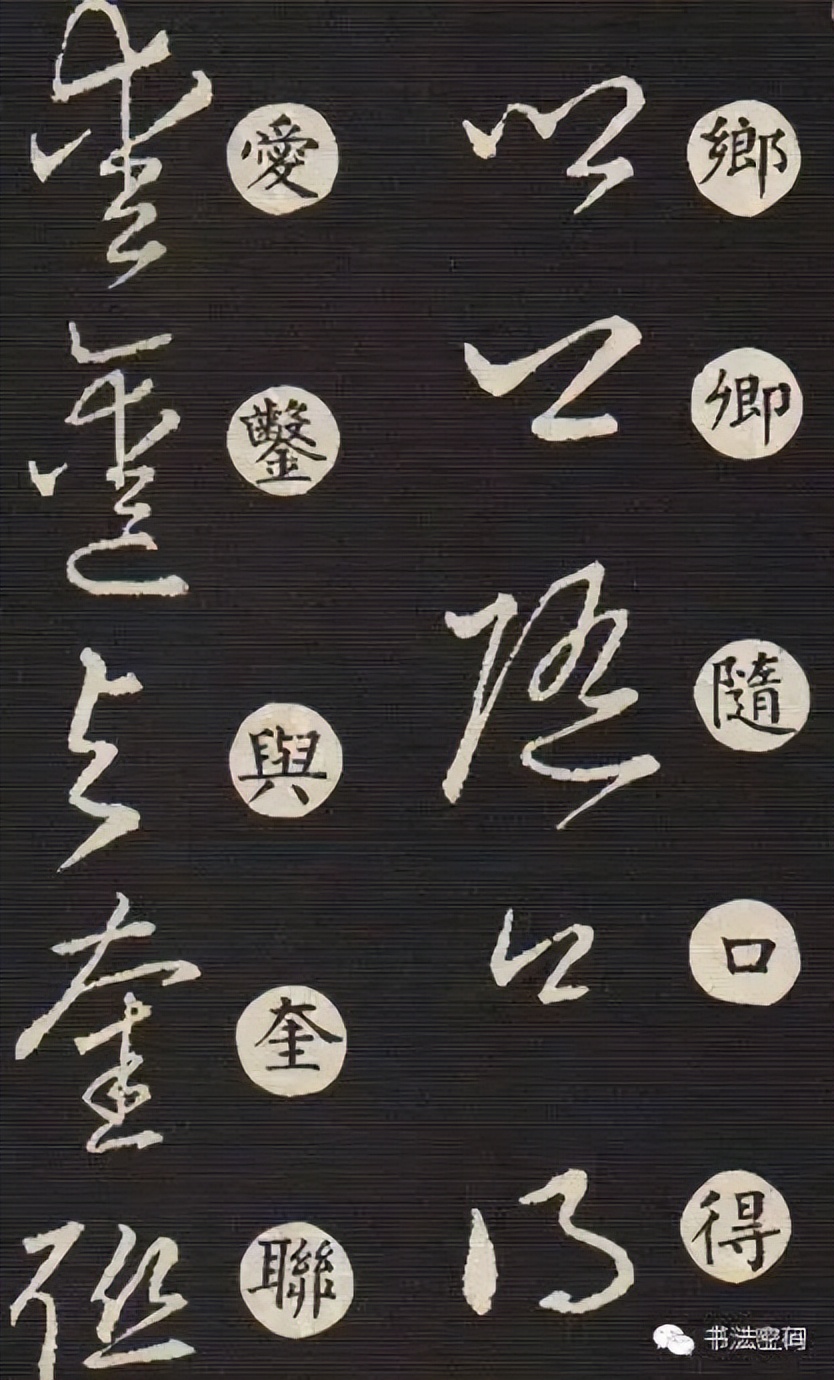 鄉
卿
隨
口
得
愛
鑿
與
奎
聯
书法